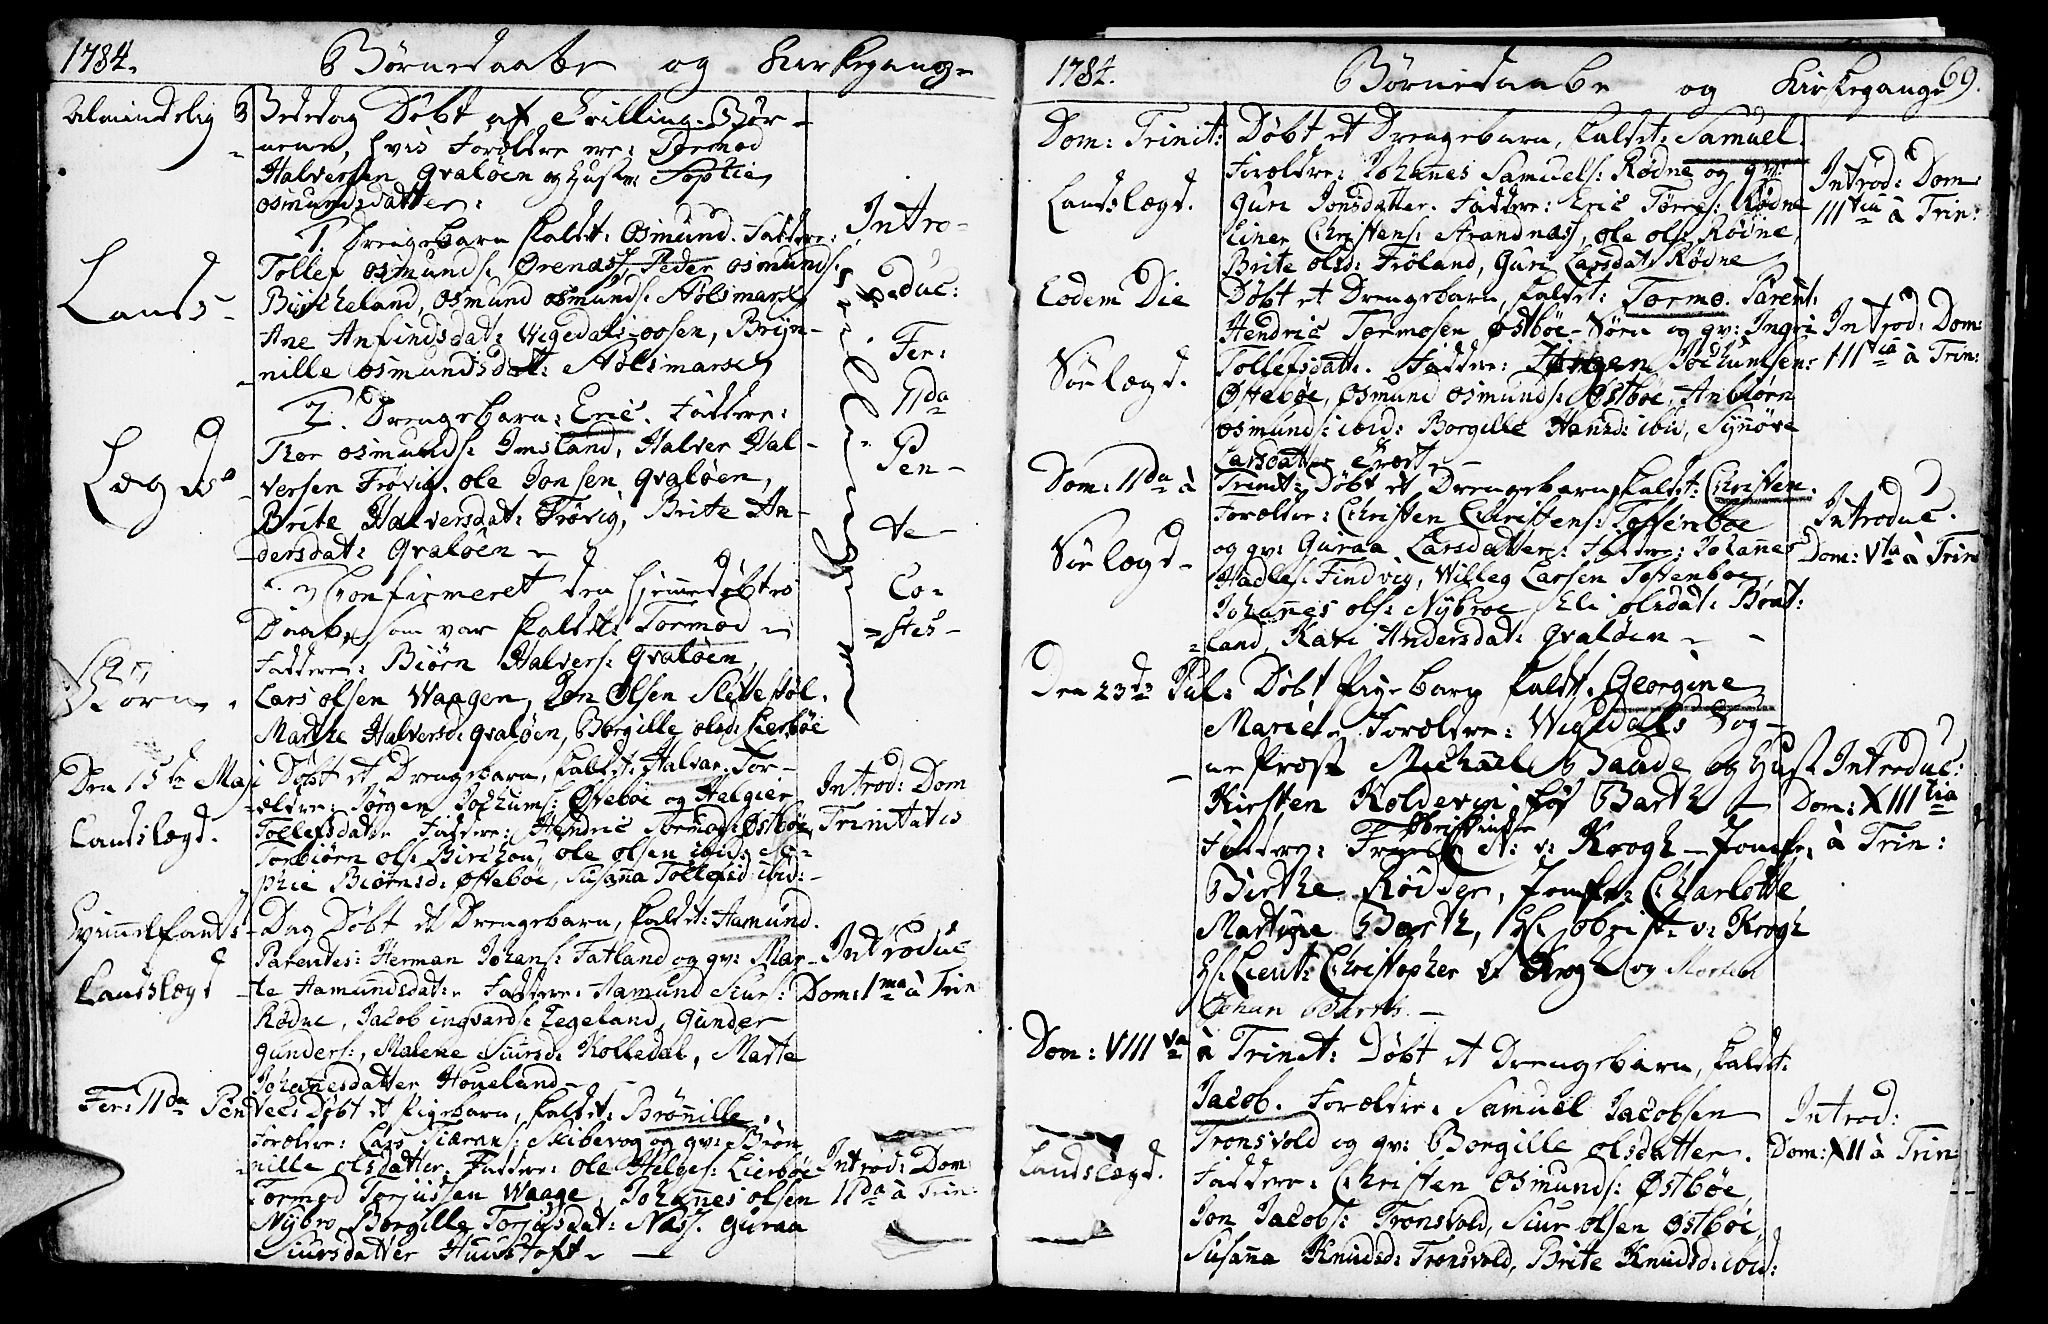 1784. Børnedaabe og Kirkegang
Almindelig Bededag Døbt af Trilling-Bør-
nene, hvis Forældre ere: Tormod
Halversen Qvaløen og Hustr: Sophie
Osmundsdatter:
1. Drengebarn kaldet: Osmund. Faddere:
Tollef Osmunds: Ørenæs, Peder Osmunds:
Birkeland, Osmund Osmunds: Aølsmark
Ane Anfindsdat: Vigedals-oosen, Bryn-
nille Osmundsdat: Aølsmark
2. Drengebarn: Eric. Faddere:
Thor Osmunds: Imsland, Halver Hal-
versen Frøvig. Ole Jonsen Qvaløen,
Brite Halversdat: Frøvig, Brite An-
dersdat: Qvaløen
3 Confirmeret den hjemmedøbtes
Daab, som var kaldet: Tormod
Faddere: Biørn Halvers: Qvaløen,
Lars Olsen Waagen, Jon Olsen Slettestøl.
Marthe Halversd: Qvaløen, Borgille Olsd: Lierbøe
Lands-
Lægds
Børn.
Intro-
duc:
Fer:
IIda
Pen-
te-
Co-
stes-
Den 15de Maj Døbt et Drengebarn, kaldet: Halvar. For-
ældre: Jørgen Jochums: Østebøe og Helgier
Tollefsdat. Faddere: Hendric Tormods: Østbøe,
Torbiørn Ols: Birchou, Ole Olsen ibid: So-
phie Biørnsd: Østebøe, Susanna Tollefsd ibid:
Landslægd.
Introd: Dom
Trinitatis
Himmelfarts-Dag Døbt et Drengebarn, kaldet: Aamund.
Parentes: Herman Johans: Fatland og qv: Mar-
te Aamundsdat. Faddere: Aamund Siurs:
Rødne, Jacob Ingvards: Tegeland, Gunder
Gunders:, Malene Siursd: Kolledal, Marte
Johannesdatter Høueland
Landslægd
Introduc
Dom: 1ma à Trin
Fer: IIda Pentec: Døbt et Pigebarn, kaldet: Brønnille.
Forældre: Lars Siærans: Skibevog og qv: Brøn
nille Olsdatter. Faddere: Ole Helges: Lierbøe
Tormod Torjussen Waage, Johannes Olsen
Nybro, Borgille Torjusdat: Næss. Guraa
Siursdatter Huustoft
Introd: Dom
IIda à Trin:
1784. Børnedaabe og Kirkegang 69.
Dom: Trinit: Døbt et Drengebarn, kaldet: Samuel.
Forældre: Johannes Samuels: Rødne og qv:
Guri Jonsdatter. Faddere: Eric Tørres: Rødne
Einer Christens: Strandnæs, Ole Ols: Rødne,
Brite Olsd: Frøland, Guri Larsdat: Rødne
Landslægd.
Introd: Dom
IIItia à Trin:
Eodem Die Døbt et Drengebarn, kaldet: Tormo. Parent:
Hendric Tormosen Østbøe-Sørn og qv: Ingri
Tollefsdat. Faddere: Jørgen Jochumsen:
Østebøe, Osmund Osmunds: Østbøe, Anbiørn
Osmunds: ibid: Borgille Hansd: ibid, Synøve
Larsdat
Sørlægd.
Introd: Dom:
IIItia à Trin:
Dom: IIda à Trinit: Døbt et Drengebarn, kaldet: Christen.
Forældre: Christen Christens: Toftenboe
og qv: Guraa Larsdatter: Faddere: Johannes
Hadles: Findvig, Willeg Larsen Toftenboe
Johannes Ols: Nybroe Eli Olsdat: Brat:
land, Kari Andersdat: Qvaløen
Sørlægd
Introduc.
Dom: Vta à Trin
Den 23de Jul: Døbt Pigebarn kaldet. Georgine
Marie. Forældre: Wigedals Sog-
ne Præst Michael Baade og Hust
Kirsten Koldevin fød Bartz
Faddere: Obristinde v: Krogh – Jomfr:
Birthe Rødder, Jomfr: Charlotte
Martine Bartz, Hr Obrist: v: Krogh
Hr. Lieut: Christopher v Krogh og Morten
Johan Bartz.
Introduc:
Dom: XIIItia
à Trin:
Dom: VIIIva à Trinit: Døbt et Drengebarn, kaldet:
Jacob. Forældre: Samuel Jacobsen
Tronsvold og qv: Borgille Olsdatter.
Faddere: Christen Osmunds: Østbøe,
Jon Jacobs: Tronsvold, Siur Olsen Østbøe,
Susanna Knudsd: Tronsvold, Brite Knudsd: ibid:
Landslægd.
Introd:
Dom: XII à Trin